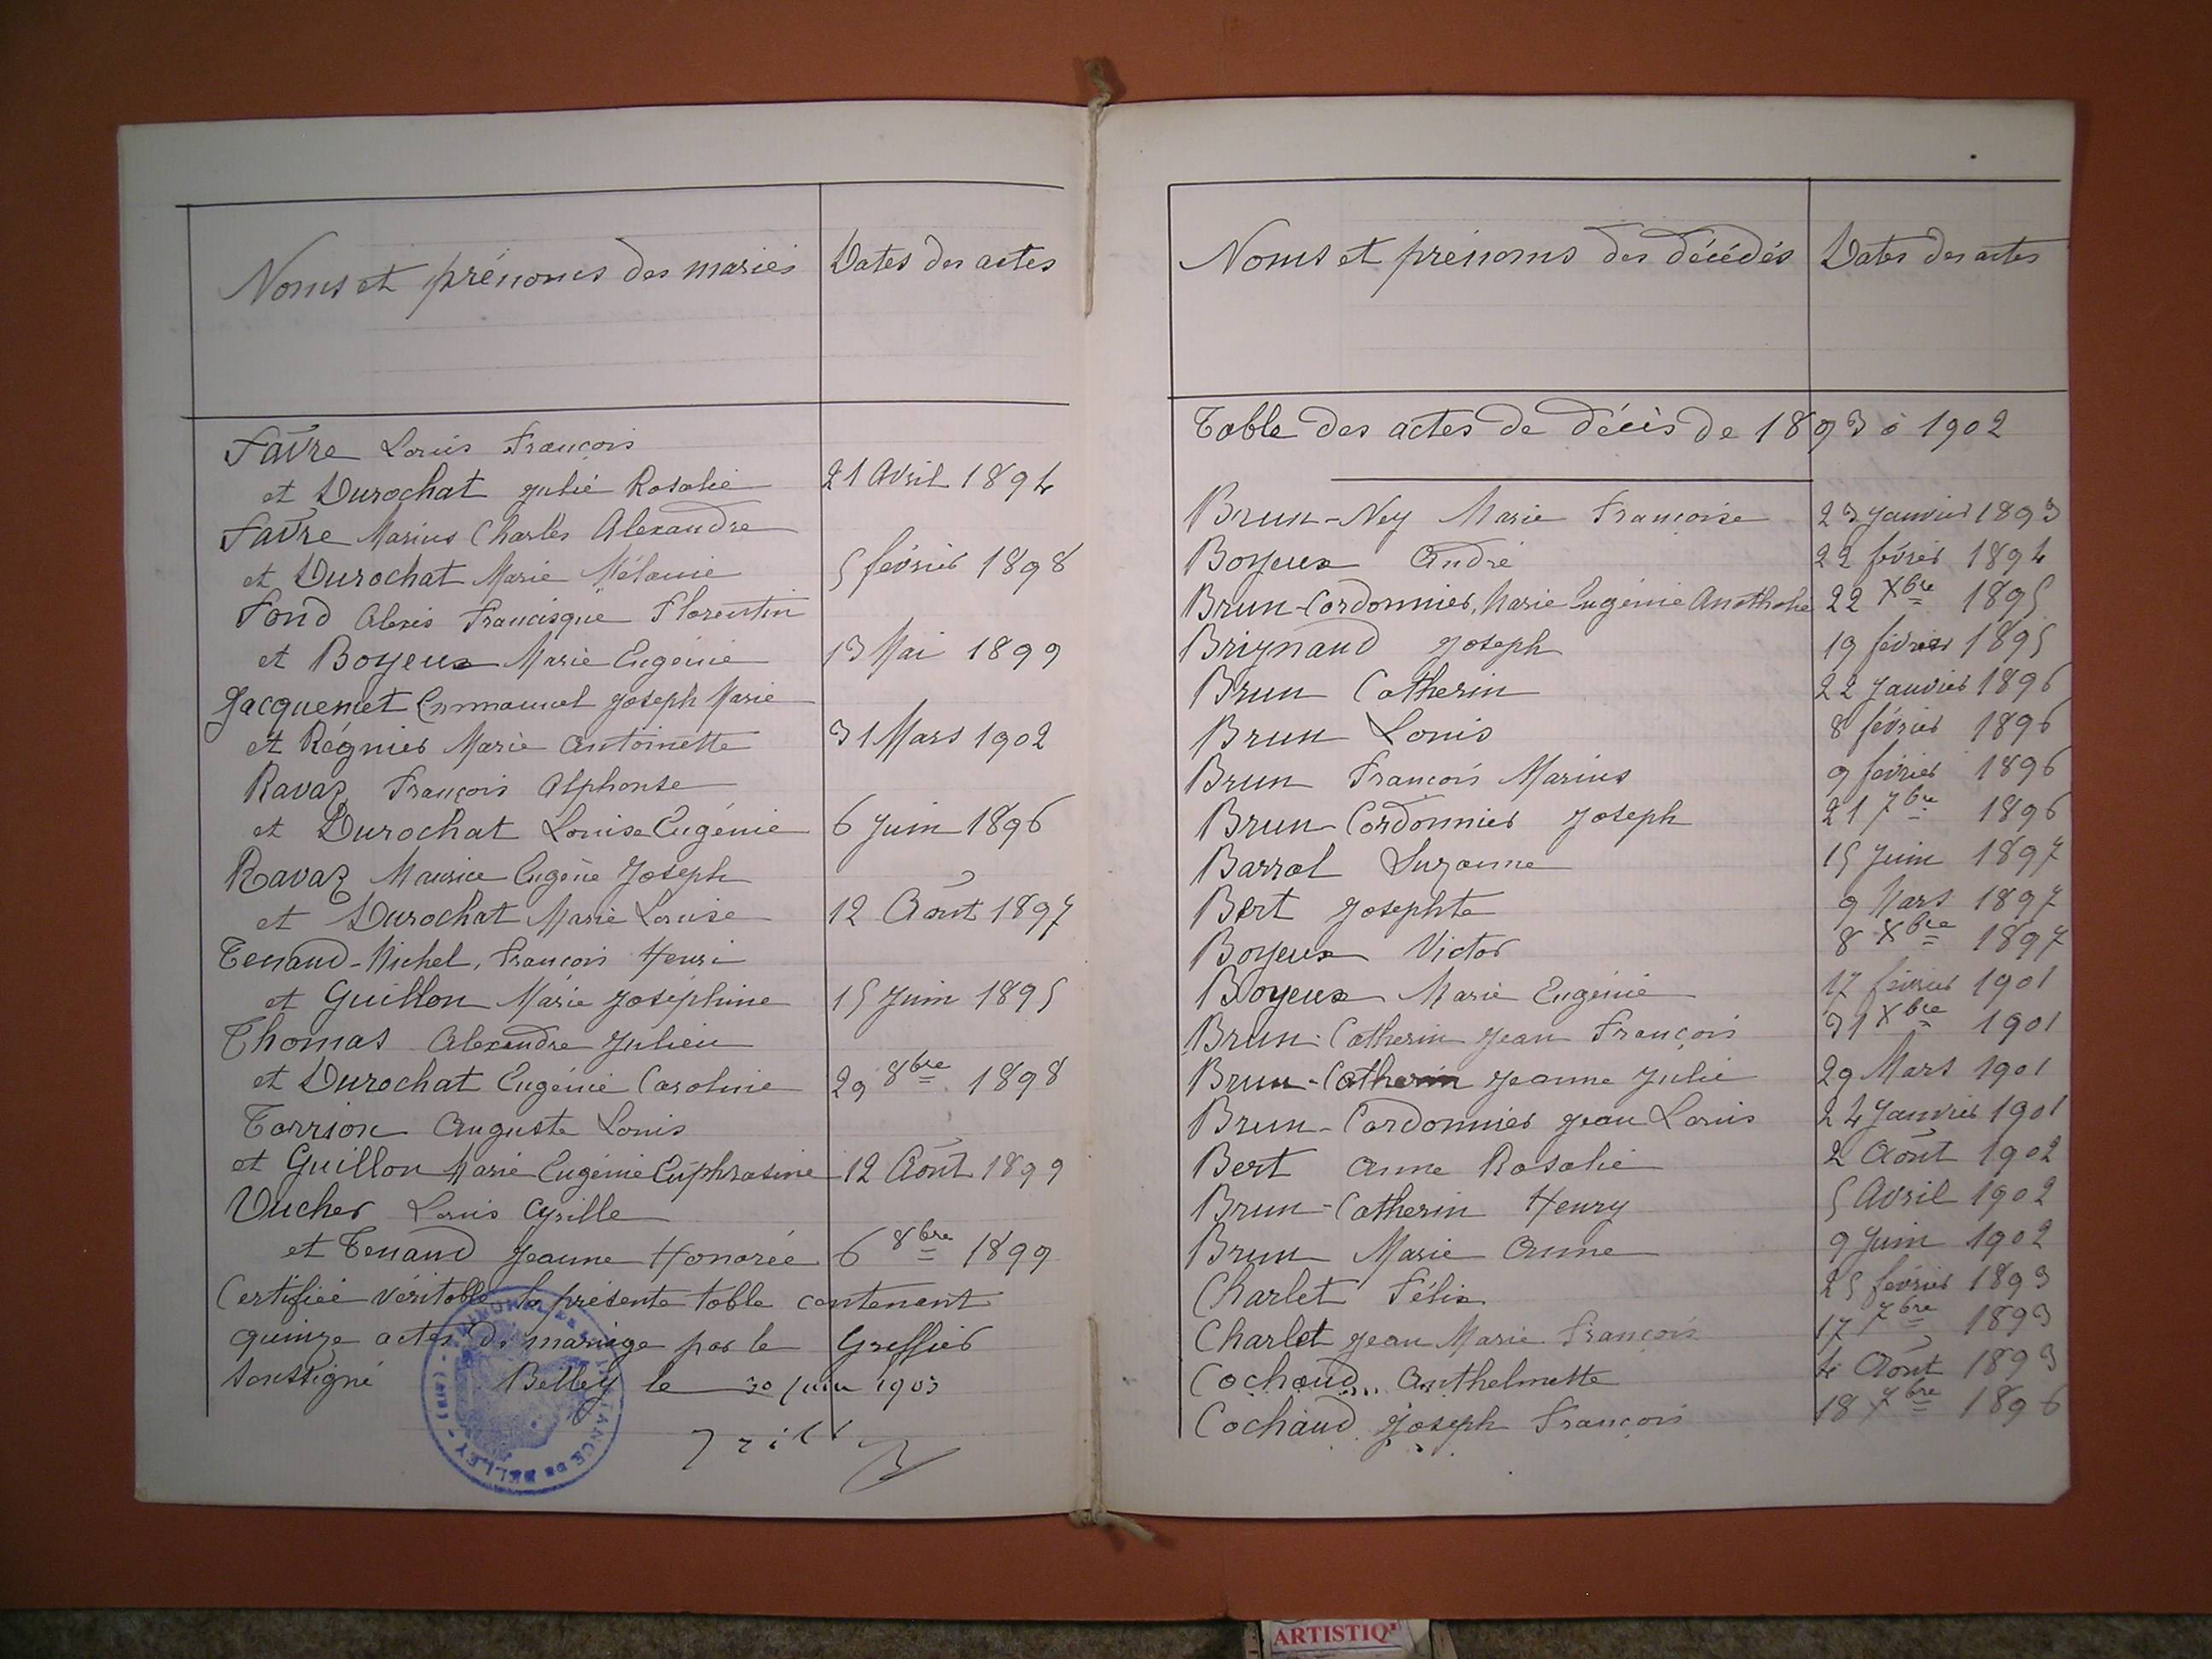 Noms et prénoms des mariés
Dates des actes
Favre Louis François
et Durochat Julie Rosalie 21 Avril 1894
Favre Marius Charles Alexandre
et Durochat Marie Mélanie 5 février 1898
Fond Alexis Francisque Florentin
et Boyeux Marie Eugénie 13 Mai 1899
Jacquemet Emmanuel Joseph Marie
et Régnier Marie Antoinette 31 Mars 1902
Ravaz François Alphonse
et Durochat Louise Eugénie 6 Juin 1896
Ravaz Maurice Eugène Joseph
et Durochat Marie Louise 12 Août 1897
Tenand-Michel, François Henri
et Guillon Marie Joséphine 15 Juin 1895
Thomas Alexandre Julien
et Durochat Eugénie Caroline 29 8bre 1898
Torrion Auguste Louis
et Guillon Marie Eugénie Euphrasine 12 Août 1899
Vucher Louis Cyrille
et Tenand Jeanne Honorée 6 8bre 1899
Certifiée véritable la présente table contenant
quinze actes de mariage par le Greffier
soussigné Belley le 30 juin 1903
BELLEY - (AIN)
Noms et prénoms des décédés
Dates des actes
Table des actes de décès de 1893 à 1902
Brun-Ney Marie Françoise 23 Janvier 1893
Boyeux André 22 février 1894
Brun-Cordonnier, Marie Eugénie Anathalie 22 Xbre 1895
Brignaud Joseph 19 février 1895
Brun Catherin 22 Janvier 1896
Brun Louis 8 février 1896
Brun François Marius 9 février 1896
Brun-Cordonnier Joseph 21 7bre 1896
Barral Suzanne 15 Juin 1897
Bert Josephte 9 Mars 1897
Boyeux Victor 8 Xbre 1897
Boyeux Marie Eugénie 17 février 1901
Brun-Catherin Jean François 31 Xbre 1901
Brun-Catherin Jeanne Julie 29 Mars 1901
Brun-Cordonnier Jean Louis 24 Janvier 1901
Bert Anne Rosalie 2 Août 1902
Brun-Catherin Henry 5 Avril 1902
Brun Marie Anne 9 Juin 1902
Charlet Félix 25 février 1893
Charlet Jean Marie François 17 7bre 1893
Cochaud Anthelmette 4 Août 1893
Cochaud Joseph François 18 7bre 1896
ARTISTIQ